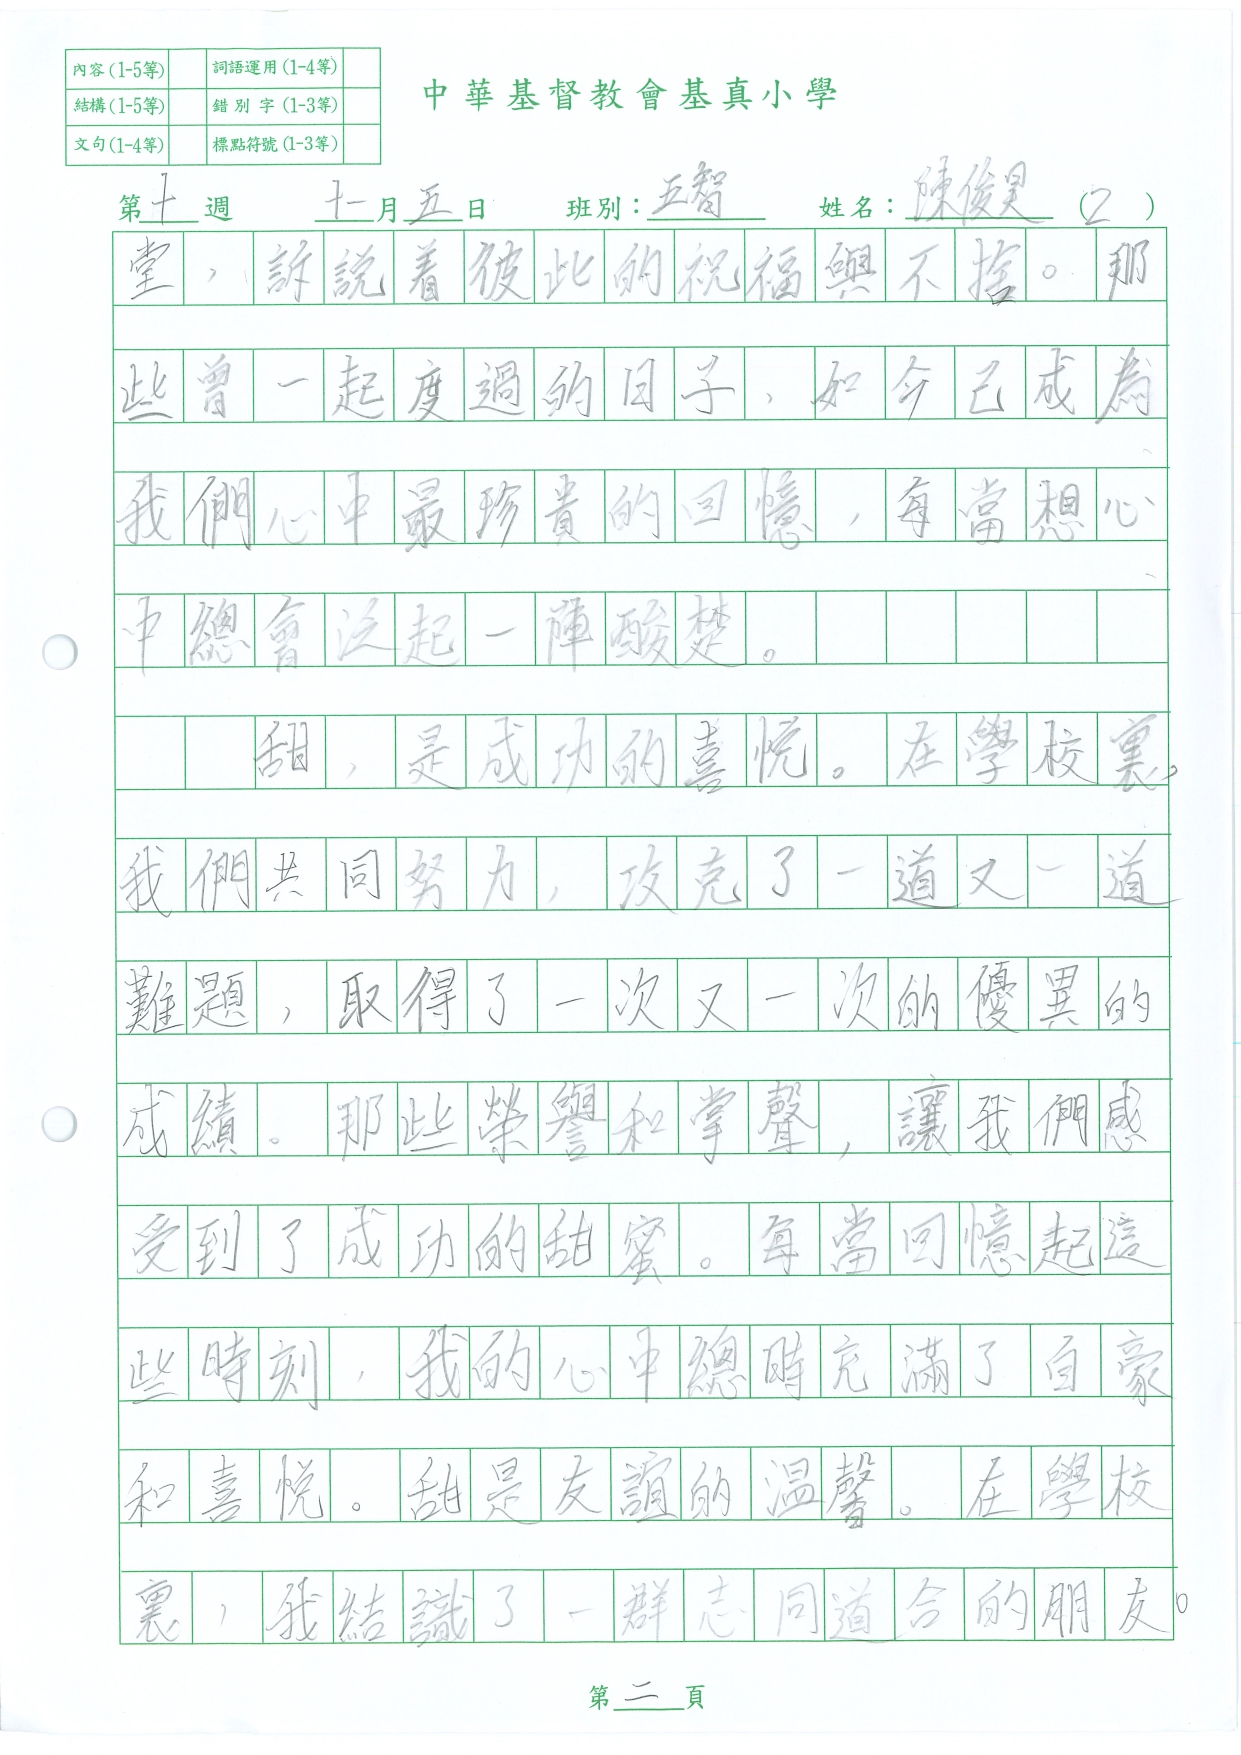 內容(1-5等) 詞語運用(1-4等)
結構(1-5等) 錯別字(1-3等)
文句(1-4等) 標點符號(1-3等)
中華基督教會基真小學
第十週 十一月五日 班別：五智 姓名：陳俊昊 (2)
堂，訴說着彼此的祝福與不捨。那
些曾一起度過的日子，如今已成為
我們心中最珍貴的回憶，每當想心
中總會泛起一陣酸楚。
甜，是成功的喜悅。在學校裏。
我們共同努力，攻克了一道又一道
難題，取得了一次又一次的優異的
成績。那些榮譽和掌聲，讓我們感
受到了成功的甜蜜。每當回憶起這
些時刻，我的心中總時充滿了自豪
和喜悅。甜是友誼的溫馨。在學校
裏，我結識了一群志同道合的朋友。
第二頁